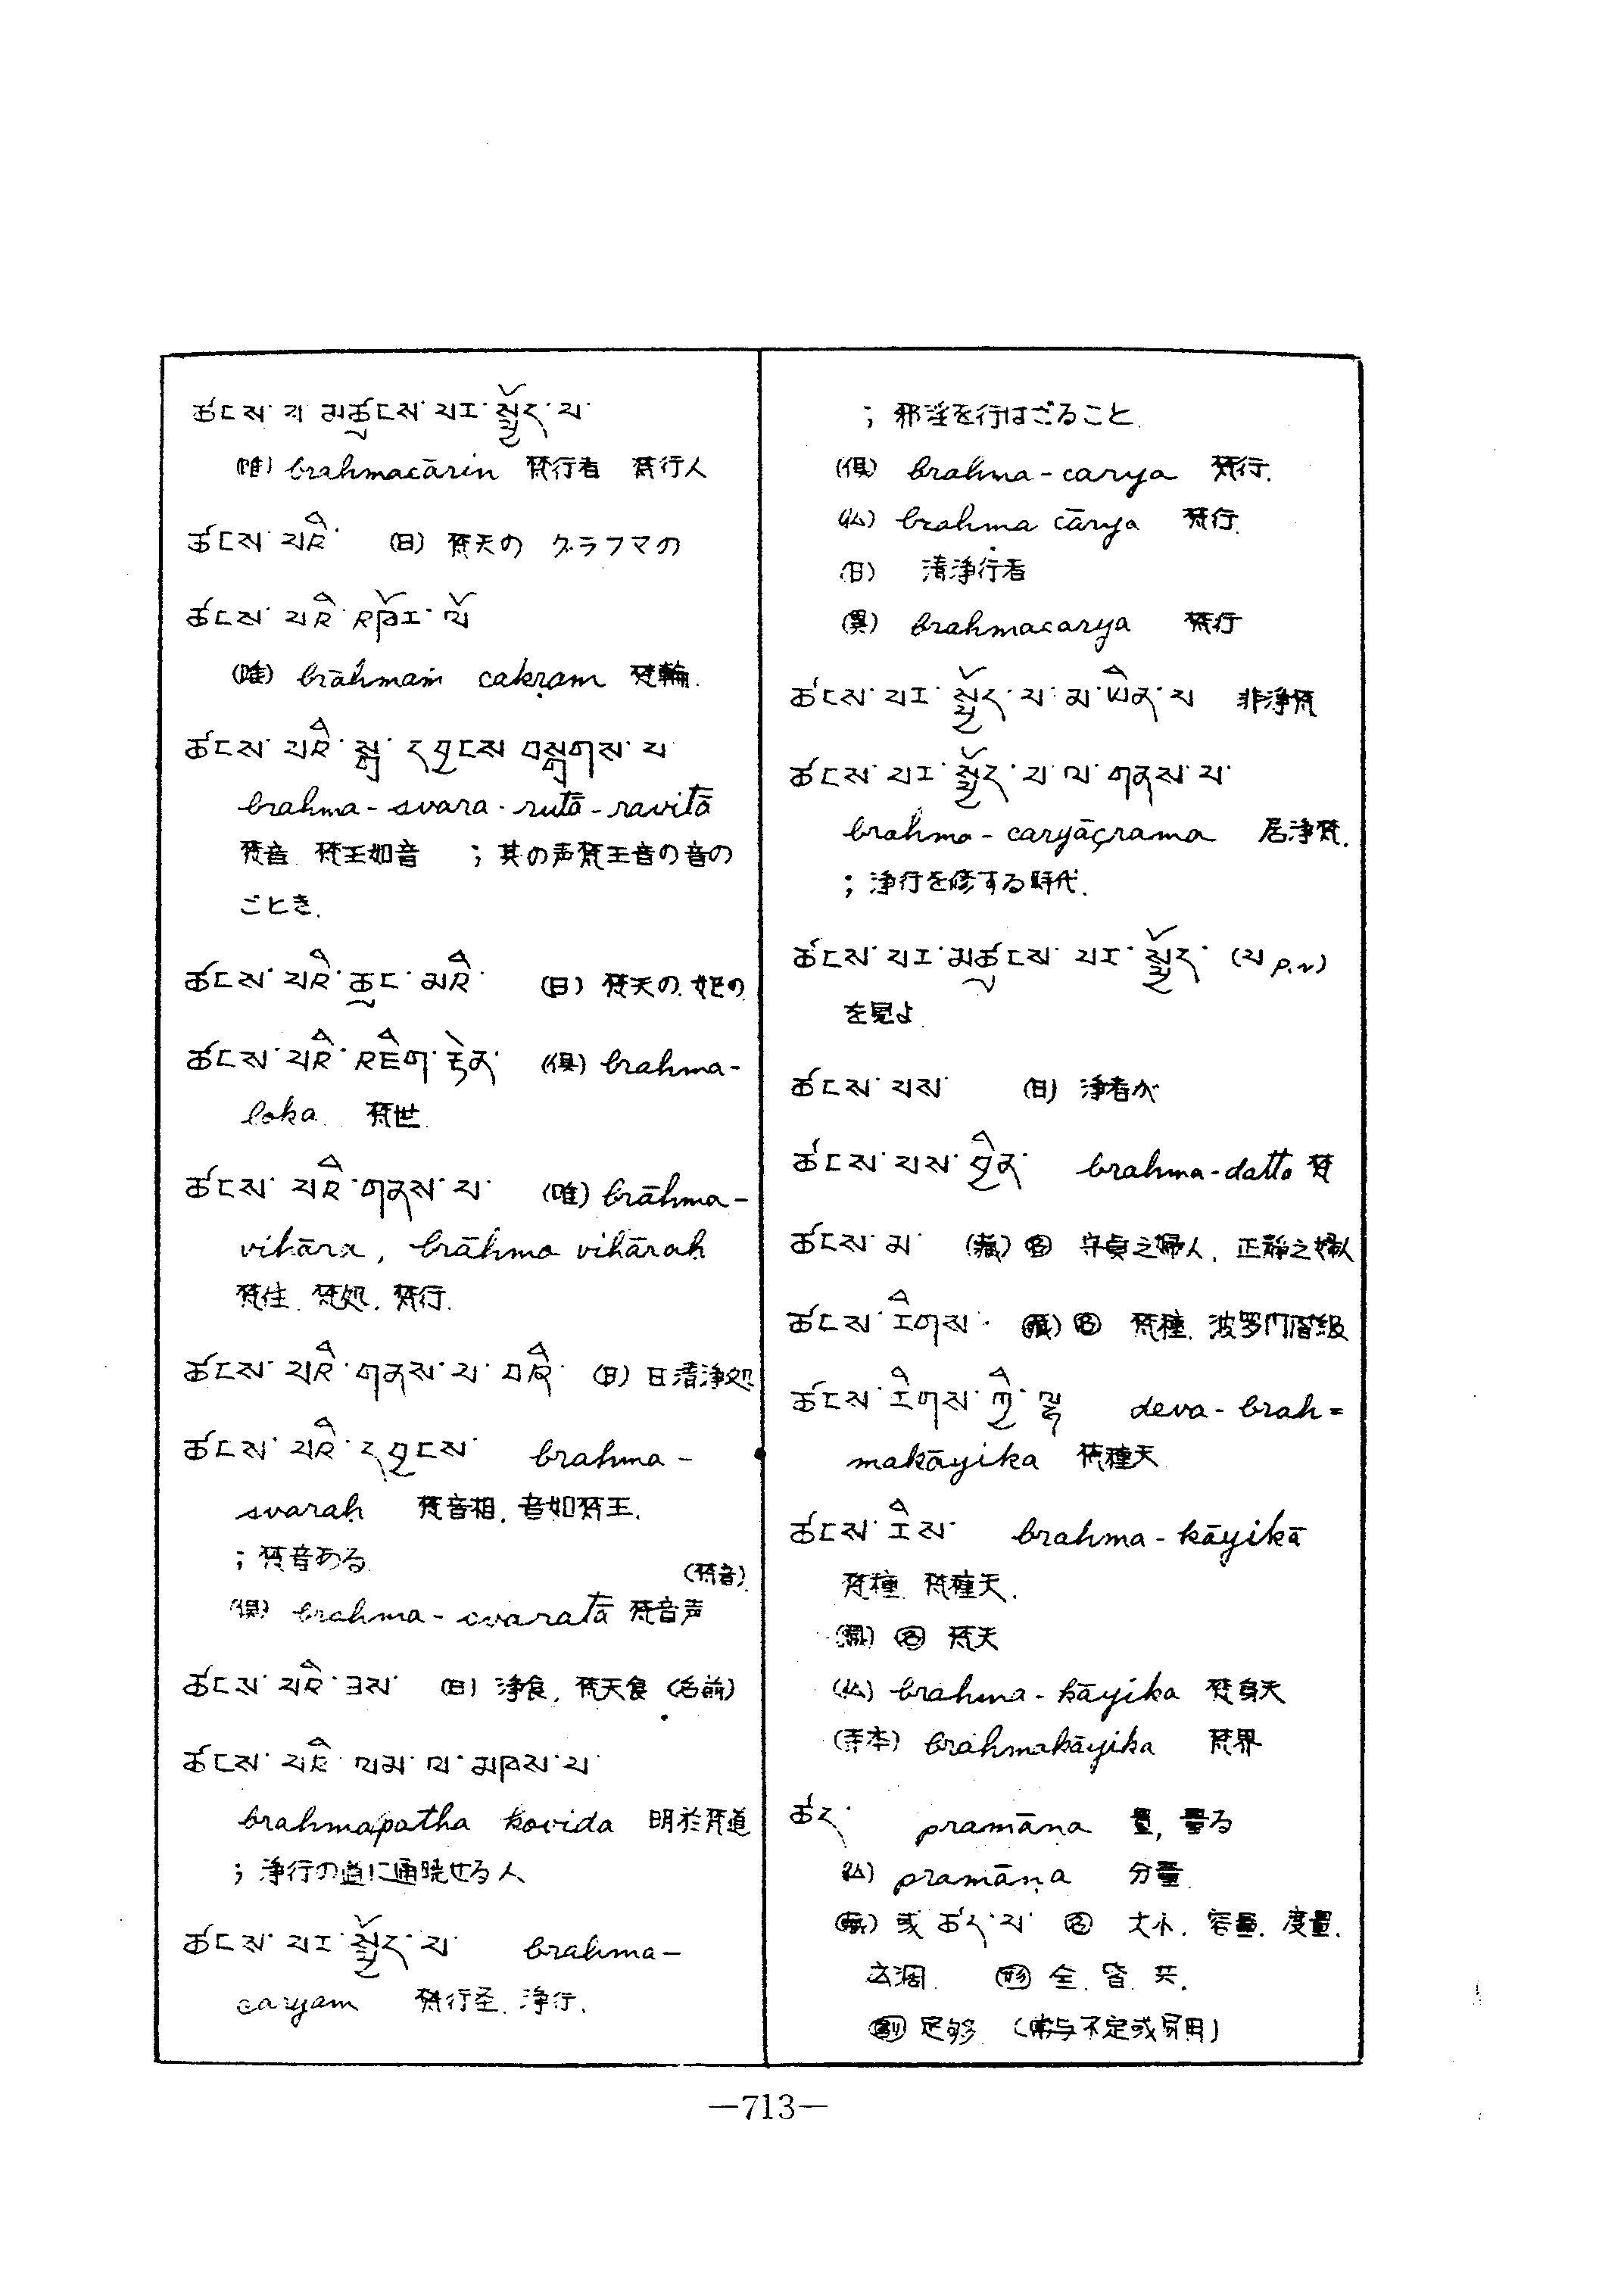 ཚངས་པ་མཚུངས་པར་སྤྱོད་པ་
(唯) brahmacārin 梵行者 梵行人
ཚངས་པའི་ (日) 梵天の ブラフマの
ཚངས་པའི་འཁོར་ལོ
(唯) brāhmaṁ cakṛam 梵輪.
ཚངས་པའི་སྒྲ་དབྱངས་བསྒྲགས་པ
brahma-svara-rutā-ravitā
梵音 梵王如音 ; 其の声梵王音の音の
ごとき.
ཚངས་པའི་ཆུང་མའི་ (日) 梵天の妃の
ཚངས་པའི་འཇིག་རྟེན་ (倶) brahma-
loka. 梵世.
ཚངས་པའི་གནས་པ་ (唯) brāhma-
vihāra, brāhma vihāraḥ
梵住. 梵処. 梵行.
ཚངས་པའི་གནས་པ་བའི་ (日) 日清浄処
ཚངས་པའི་དབྱངས་ brahma-
svaraḥ 梵音相. 音如梵王.
; 梵音ある (梵音)
(倶) brahma-cvaratā 梵音声
ཚངས་པའི་ཟས་ (日) 浄食, 梵天食 (名前)
ཚངས་པའི་ལམ་ལ་མཁས་པ་
brahmapatha kovida 明於梵道
; 浄行の道に通暁せる人
ཚངས་པར་སྤྱོད་པ་ brahma-
caryam 梵行圣. 浄行.
; 邪淫を行はざること.
(倶) brahma-carya 梵行.
(仏) brahma cārya 梵行.
(日) 清浄行者
(異) brahmacarya 梵行
ཚངས་པར་སྤྱོད་པ་མ་ཡིན་པ 非浄梵
ཚངས་པར་སྤྱོད་པ་ལ་གནས་པ་
brahma-caryāçrama 居浄梵.
; 浄行を修する時代.
ཚངས་པར་མཚུངས་པར་སྤྱོད་ (པ p.v)
を見よ.
ཚངས་པས་ (日) 浄者が
ཚངས་པས་བྱིན་ brahma-datta 梵
ཚངས་མ་ (蔵) 名 守貞之婦人, 正静之婦人
ཚངས་རིགས་ (蔵) 名 梵種. 波罗门階級
ཚངས་རིགས་ཀྱི་ལྷ deva-brah=
makāyika 梵種天
ཚངས་རིས་ brahma-kāyikā
梵種. 梵種天.
(蔵) 名 梵天
(仏) brahma-kāyika 梵身天
(寺本) brahmakāyika 梵界
ཚད་ pramāṇa 量, 量る
(仏) pramāṇa 分量
(蔵) 或 ཚད་པ་ 名 大小. 容量. 度量.
形 全. 皆. 共.
副 足够 (常与不定或字用)
—713—